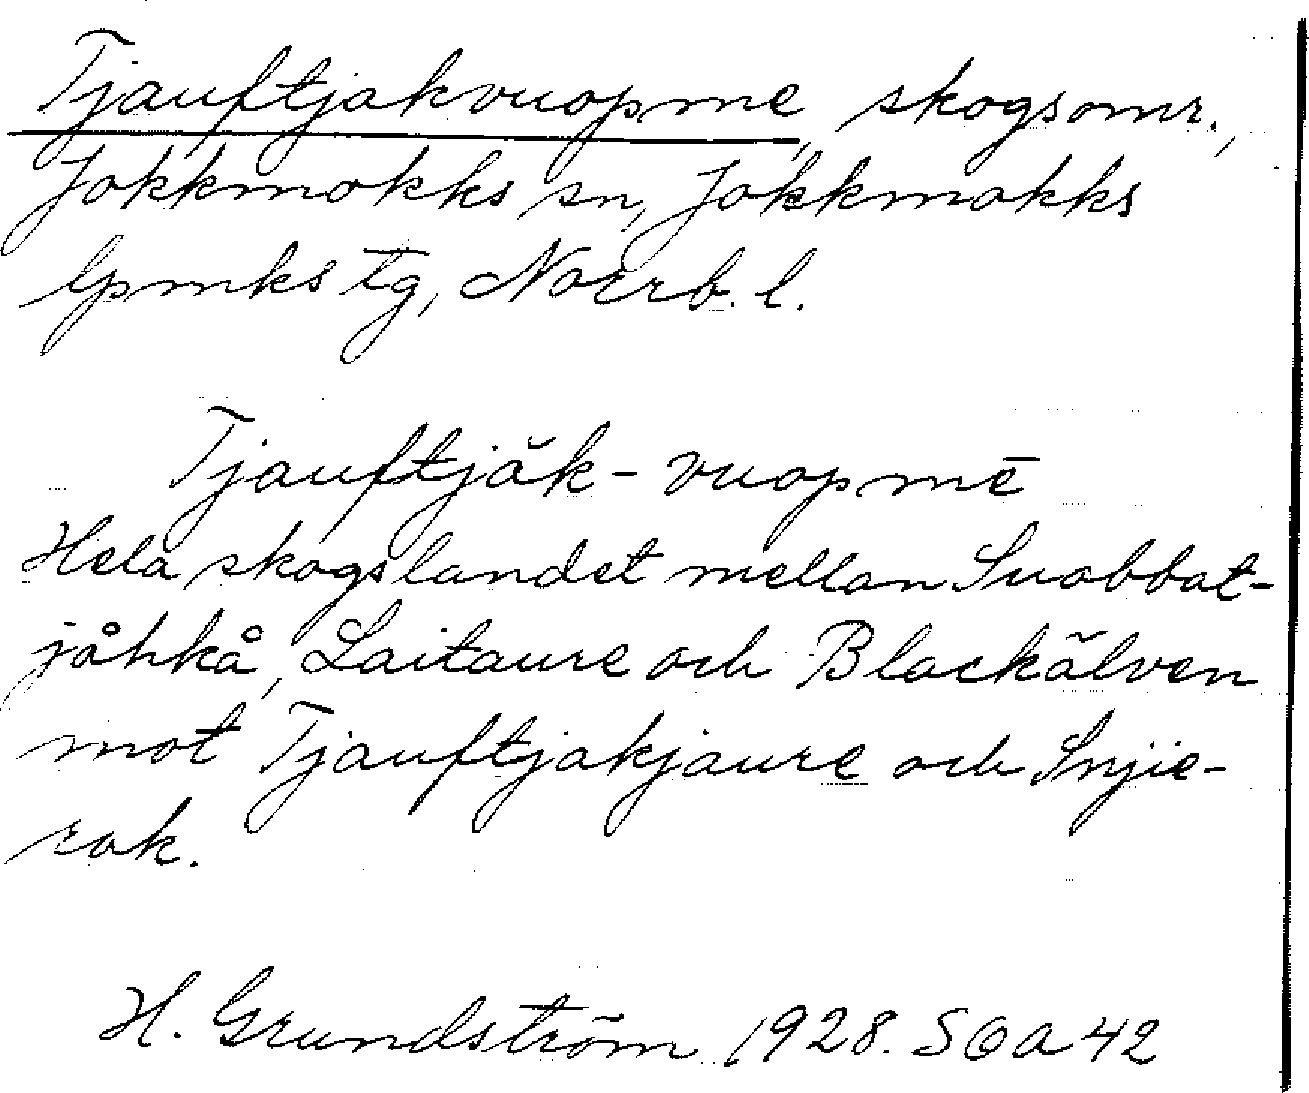 Tjauftjakvuopme, skogsomr.,
Jokkmokks sn, Jokkmokks
lpmks tg, Norrb. l.
Tjauftjăk-vuopmē
Hela skogslandet mellan Suobbat-
jåhkå, Laitaure och Blackälven
mot Tjauftjakjaure och Snjie-
rak.
H. Grundström 1928. SOA 42